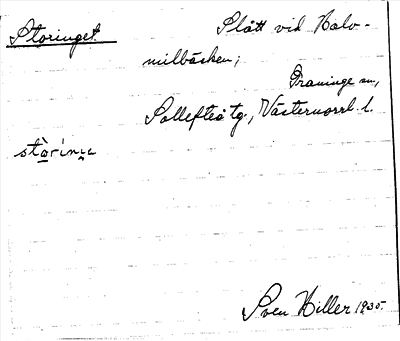 Storinget Slått vid Halv-
milbäcken;
Graninge sn,
Sollefteå tg., Västernorrl. l.
Sven Hiller 1935.